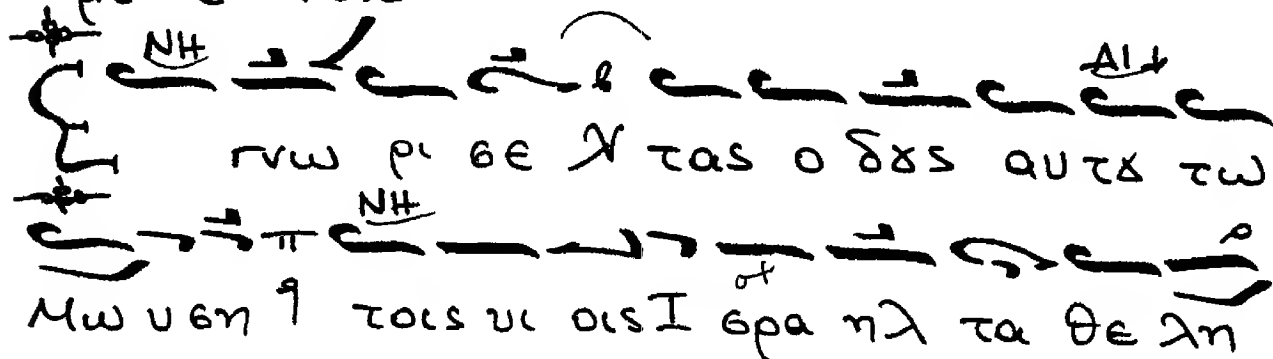 ΝΗ
Ε γνω ρι σε ν τας ο δȣς αυ τȣ τω
ΝΗ
Μω υ ση τοις υι οις Ι σρα ηλ τα θε λη